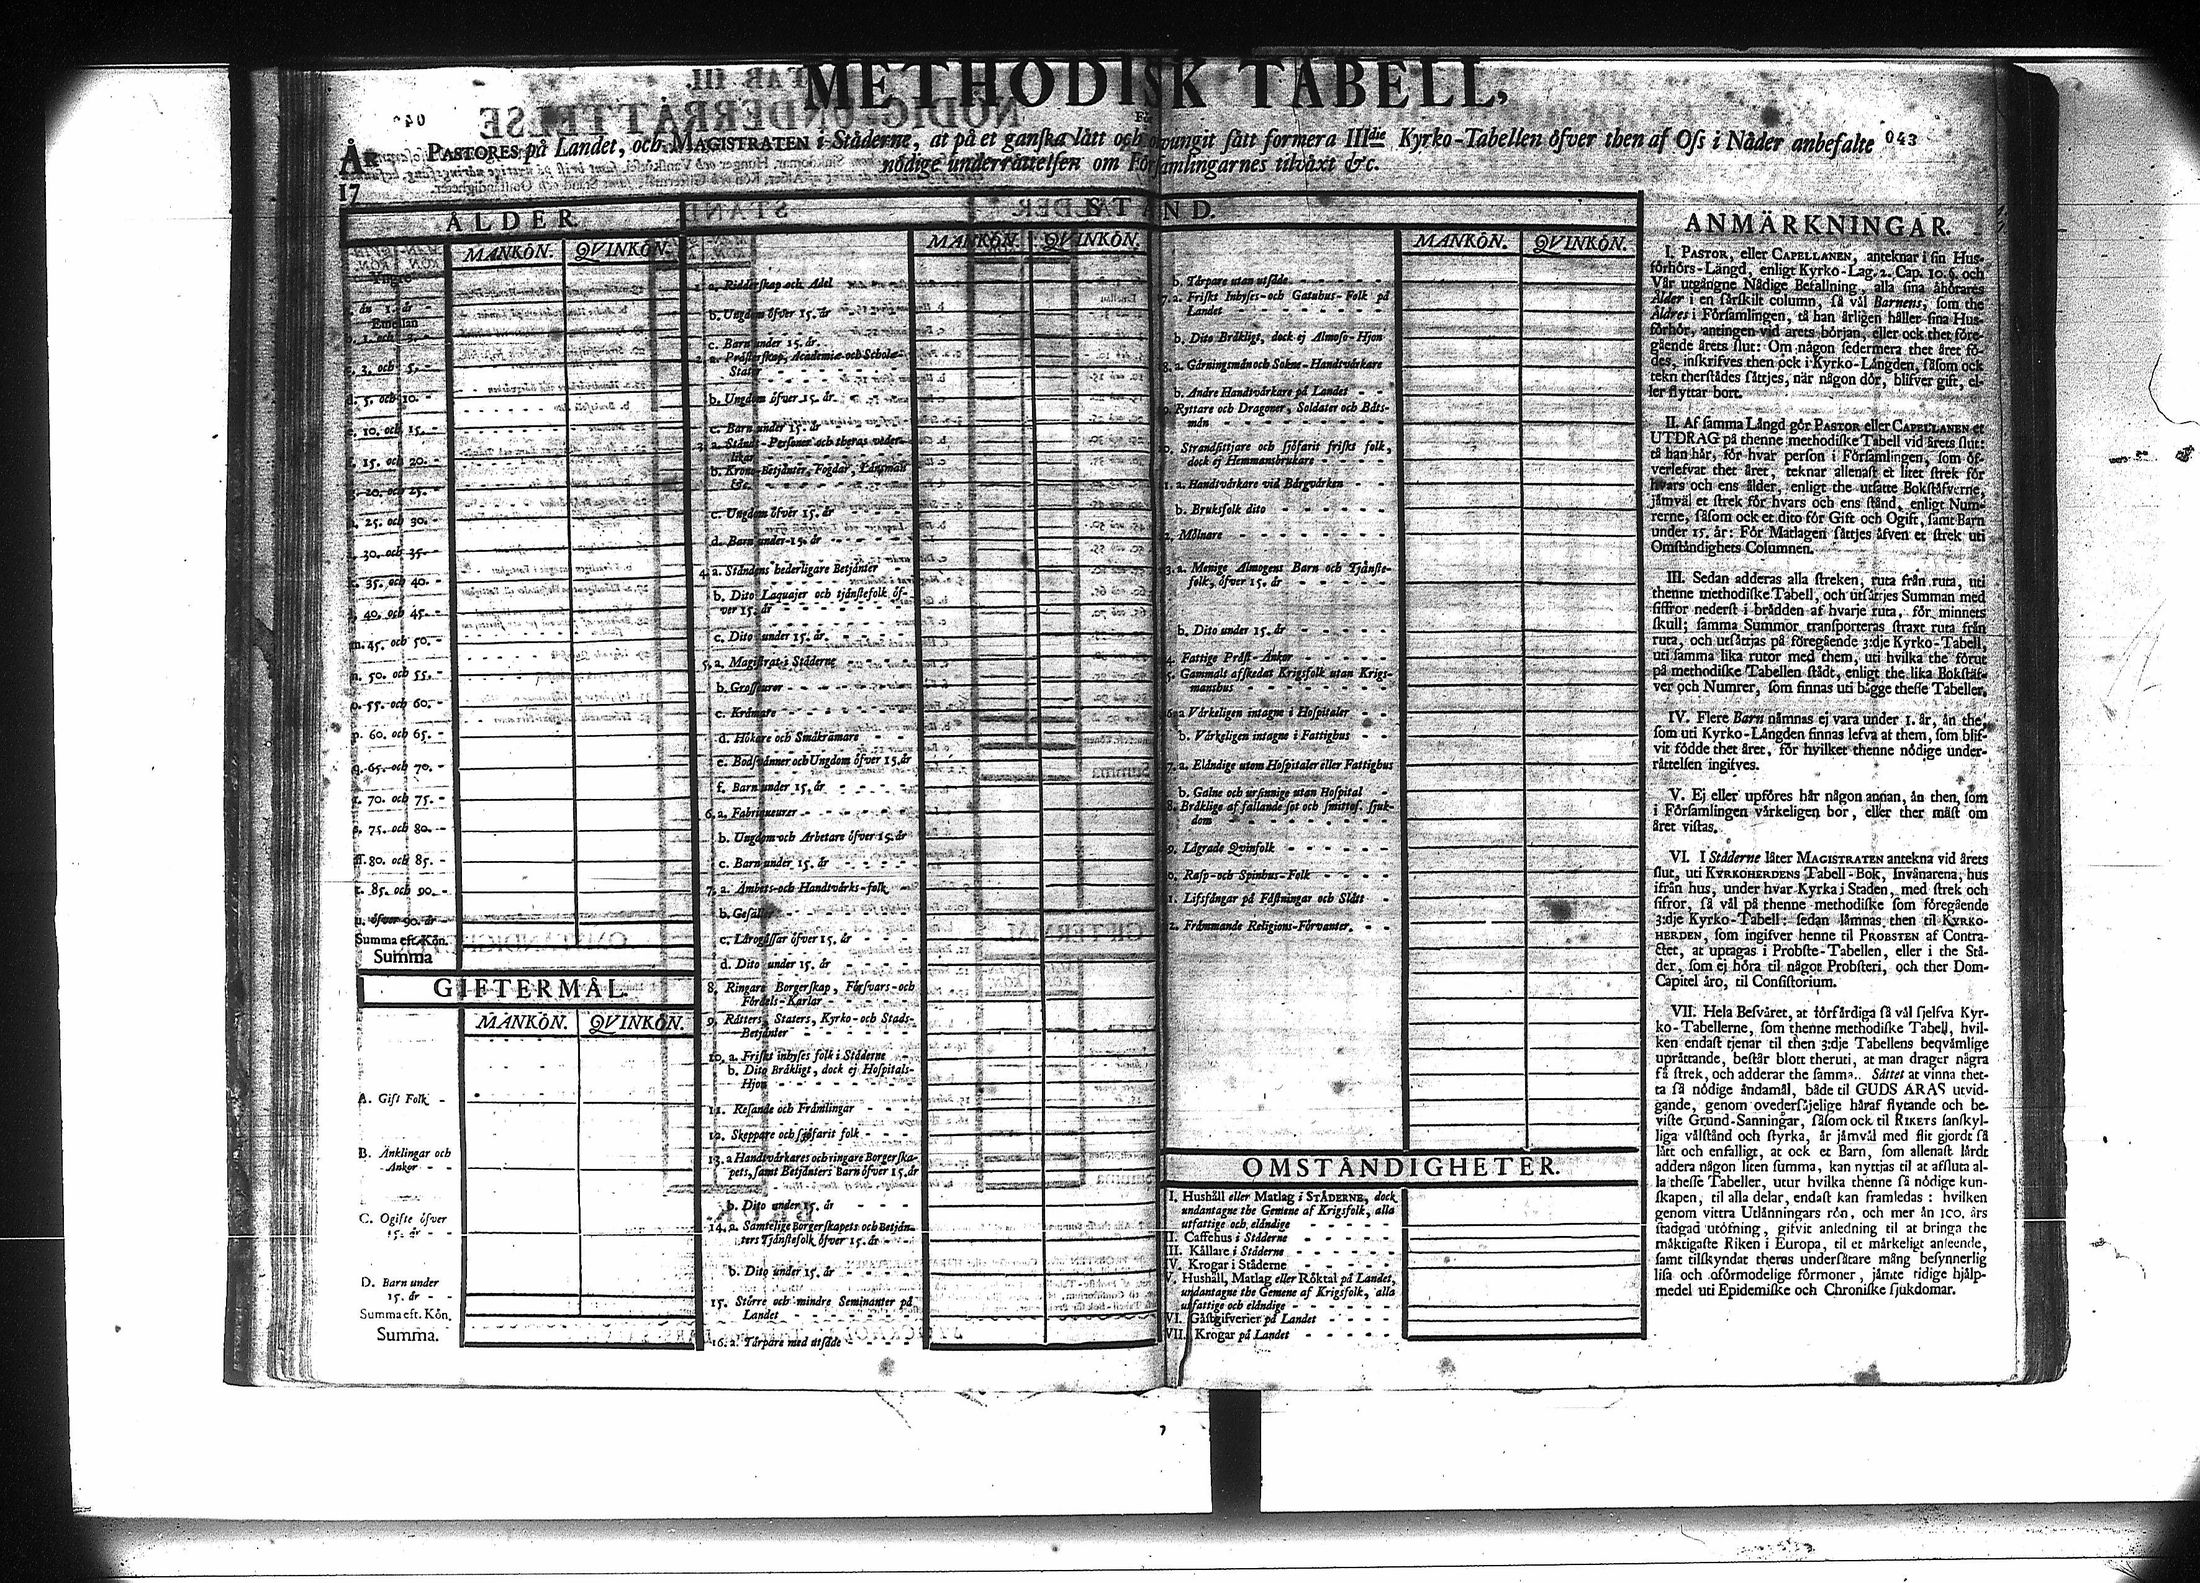 METHODISK TABELL,
För
PASTORES på Landet, och MAGISTRATEN i Ståderne, at på et ganska lått och otvungit sått formera III die Kyrko-Tabellen ôfver then af Oss i Nåder anbefalte
043
nôdige underråttelsen om Fôrsamlingarnes tilvåxt &c.
År
17
ÅLDER.
MANKÔN. QVINKÔN.
Yngre
ån 1. år -
Emellan
b. 1. och 3. -
c. 3. och 5. -
d. 5. och 10. -
e. 10. och 15. -
f. 15. och 20. -
g. 20. och 25. -
h. 25. och 30. -
i. 30. och 35. -
k. 35. och 40. -
l. 40. och 45. -
m. 45. och 50. -
n. 50. och 55. -
o. 55. och 60. -
p. 60. och 65. -
q. 65. och 70. -
r. 70. och 75. -
s. 75. och 80. -
ss. 80. och 85. -
t. 85. och 90. -
u. ôfver 90. år -
Summa eft. Kôn.
Summa
GIFTERMÅL.
MANKÔN. QVINKÔN.
A. Gift Folk -
B. Ånklingar och
Ånkor - -
C. Ogifte ôfver
15. år - -
D. Barn under
15. år - -
Summa eft. Kôn.
Summa.
STÅND.
MANKÔN. QVINKÔN.
1. a. Ridderskap och Adel
b. Ungdom ôfver 15. år
c. Barn under 15. år.
2. a. Pråsterskap, Academiæ och Scholæ-
Stater
b. Ungdom ôfver 15. år.
c. Barn under 15. år
3. a. Stånds-Personer och theras veder-
likar
b. Krono-Betjånter, Fogdar, Lånsmån
&c.
c. Ungdom ôfver 15. år
d. Barn under 15. år
4. a. Ståndens hederligare Betjånter
b. Dito Laquajer och tjånstefolk ôf-
ver 15. år
c. Dito under 15. år.
5. a. Magistrat i Ståderne
b. Grosseurer
c. Kråmare
d. Hôkare och Småkråmare
e. Bodsvånner och Ungdom ôfver 15. år
f. Barn under 15. år
6. a. Fabriqueurer
b. Ungdom och Arbetare ôfver 15. år
c. Barn under 15. år
7. a. Åmbets-och Handtvårks-folk
b. Gesåller
c. Lårogåssar ôfver 15. år
d. Dito under 15. år
8. Ringare Borgerskap, Fôrsvars-och
Fôrdels-Karlar
9. Råtters, Staters, Kyrko-och Stads-
Betjånter
10. a. Friskt inhyses folk i Ståderne
b. Dito Bråkligt, dock ej Hospitals-
Hjon
11. Resande och Fråmlingar
12. Skeppare och sjôfarit folk
13. a Handtvårkares och ringare Borgerska-
pets, samt Betjånters Barn ôfver 15. år
b. Dito under 15. år
14. a. Samtelige Borgerskapets och Betjån-
ters Tjånstefolk ôfver 15. år
b. Dito under 15. år
15. Stôrre och mindre Seminanter på
Landet
16. a. Tårpare med utsåde
MANKÔN. QVINKÔN.
b. Tårpare utan utsåde
7. a. Friskt Inhyses-och Gatuhus-Folk på
Landet
b. Dito Bråkligt, dock ej Almoso-Hjon
8. a. Gårningsmån och Sokne-Handtvårkare
b. Andre Handtvårkare på Landet
9. Ryttare och Dragoner, Soldater och Båts-
mån
0. Strandsittjare och sjôfarit friskt folk,
dock ej Hemmansbrukare
1. a. Handtvårkare vid Bårgvårken
b. Bruksfolk dito
2. Môlnare
3. a. Menige Almogens Barn och Tjånste-
folk, ôfver 15. år
b. Dito under 15. år
4. Fattige Pråst-Ånkor
5. Gammalt afskedat Krigsfolk utan Krigs-
manshus
6. a Vårkeligen intagne i Hospitaler
b. Vårkeligen intagne i Fattighus
7. a. Elåndige utom Hospitaler eller Fattighus
b. Galne och ursinnige utan Hospital
8. Bråklige af fallande sot och smittos. sjuk-
dom
9. Lågrade Qvinfolk
0. Rasp-och Spinhus-Folk
1. Lifsfångar på Fåstningar och Slått
2. Fråmmande Religions-Fôrvanter.
OMSTÅNDIGHETER.
I. Hushåll eller Matlag i STÅDERNE, dock
undantagne the Gemene af Krigsfolk, alla
utfattige och elåndige
II. Caffehus i Ståderne
III. Kållare i Ståderne
IV. Krogar i Ståderne
V. Hushåll, Matlag eller Rôktal på Landet,
undantagne the Gemene af Krigsfolk, alla
utfattige och elåndige
VI. Gåstgifverier på Landet
VII. Krogar på Landet
ANMÄRKNINGAR.
I. PASTOR, eller CAPELLANEN, anteknar i sin Hus-
fôrhôrs-Långd, enligt Kyrko-Lag. 2. Cap. 10. §. och
Vår utgångne Nådige Befallning, alla sina åhôrares
Ålder i en sårskilt column, så vål Barnens, som the
Åldres i Fôrsamlingen, tå han årligen håller sina Hus-
fôrhôr, antingen vid årets bôrjan, eller ock thet fôre-
gående årets slut: Om någon sedermera thet året fô-
des, inskrifves then ock i Kyrko-Långden, såsom ock
tekn therstådes såttjes, når någon dôr, blifver gift, el-
ler flyttar bort.
II. Af samma Långd gôr PASTOR eller CAPELLANEN et
UTDRAG på thenne methodiske Tabell vid årets slut:
tå han hår, fôr hvar person i Fôrsamlingen, som ôf-
verlefvat thet året, teknar allenast et litet strek fôr
hvars och ens ålder, enligt the utsatte Bokståfverne,
jåmvål et strek fôr hvars och ens stånd, enligt Num-
rerne, såsom ock et dito fôr Gift och Ogift, samt Barn
under 15. år: Fôr Matlagen såttjes åfven et strek uti
Omståndighets Columnen.
III. Sedan adderas alla streken, ruta från ruta, uti
thenne methodiske Tabell, och utsåttjes Summan med
siffror nederst i brådden af hvarje ruta, fôr minnets
skull; samma Summor transporteras straxt ruta från
ruta, och utsåttjas på fôregående 3:dje Kyrko-Tabell,
uti samma lika rutor med them, uti hvilka the fôrut
på methodiske Tabellen stådt, enligt the lika Bokståf-
ver och Numrer, som finnas uti bågge thesse Tabeller.
IV. Flere Barn nåmnas ej vara under 1. år, ån the,
som uti Kyrko-Långden finnas lefva at them, som blif-
vit fôdde thet året, fôr hvilket thenne nôdige under-
råttelsen ingifves.
V. Ej eller upfôres hår någon annan, ån then, som
i Fôrsamlingen vårkeligen bor, eller ther måst om
året vistas.
VI. I Ståderne låter MAGISTRATEN antekna vid årets
slut, uti KYRKOHERDENS Tabell-Bok, Invånarena, hus
ifrån hus, under hvar Kyrka i Staden, med strek och
sifror, så vål på thenne methodiske som fôregående
3:dje Kyrko-Tabell: sedan låmnas then til KYRKO-
HERDEN, som ingifver henne til PROBSTEN af Contra-
ctet, at uptagas i Probste-Tabellen, eller i the Stå-
der, som ej hôra til något Probsteri, och ther Dom-
Capitel åro, til Consistorium.
VII. Hela Besvåret, at fôrfårdiga så vål sjelfva Kyr-
ko-Tabellerne, som thenne methodiske Tabell, hvil-
ken endast tjenar til then 3:dje Tabellens beqvåmlige
upråttande, består blott theruti, at man drager några
få strek, och adderar the samma. Såttet at vinna thet-
ta så nôdige åndamål, både til GUDS ÅRAS utvid-
gande, genom ovedersåjelige håraf flytande och be-
viste Grund-Sanningar, såsom ock til RIKETS sanskyl-
liga vålstånd och styrka, år jåmvål med flit gjordt så
lått och enfalligt, at ock et Barn, som allenast lårdt
addera någon liten summa, kan nyttjas til at afsluta al-
la thesse Tabeller, utur hvilka thenne så nôdige kun-
skapen, til alla delar, endast kan framledas: hvilken
genom vittra Utlånningars rôn, och mer ån 100. års
stadgad utôfning, gifvit anledning til at bringa the
måktigaste Riken i Europa, til et mårkeligt anseende,
samt tilskyndat theras undersåtare mång besynnerlig
lisa och ofôrmodelige fôrmoner, jåmte tidige hjålp-
medel uti Epidemiske och Chroniske sjukdomar.